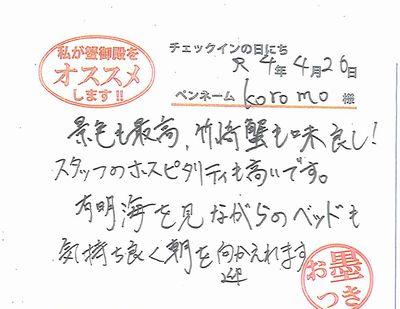 私が蟹御殿を
オススメ
します!!
チェックインの日にち
R4年4月26日
ペンネーム koromo 様
景色も最高、竹崎蟹も味良し!
スタッフのホスピタリティも高いです。
有明海を見ながらのベッドも
気持ち良く朝を向かえれます
迎
お墨
つき